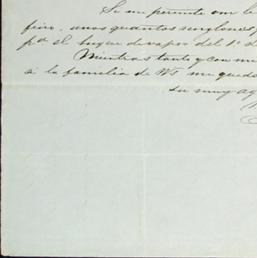 Se me permite con
fino, unos cuantos renglones
pa. el buque de vapor del 1o. d
Mientras tanto y con m
á la familia de V. me qued
su muy a